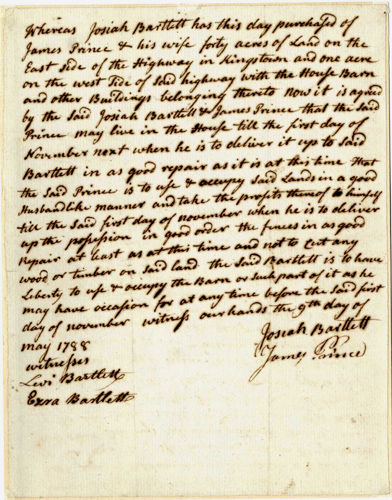 Whereas Josiah Bartlett has this day purchased of
James Prince & his wife forty acres of Land on the
East Side of the Highway in Kingstown and one acre
on the west Side of said highway with the House Barn
and other Buildings belonging thereto now it is agreed
by the said Josiah Bartlett & James Prince that the Said
Prince may live in the House till the first day of
November next when he is to deliver it up to said
Bartlett in as good repair as it is at this time that
the said Prince is to use & occupy said Lands in a good
Husbandlike manner and take the profits thereof to himself
till the Said first day of november when he is to deliver
up the possession in good order the fences in as good
repair at least as at this time and not to Cut any
wood or timber on said land the Said Bartlett is to have
Liberty to use & occupy the Barn or such part of it as he
may have occasion for at any time before the said first
day of november witness our hands the 9th day of
may 1788
Josiah Bartlett
James Prince
witnesses
Levi Bartlett
Ezra Bartlett